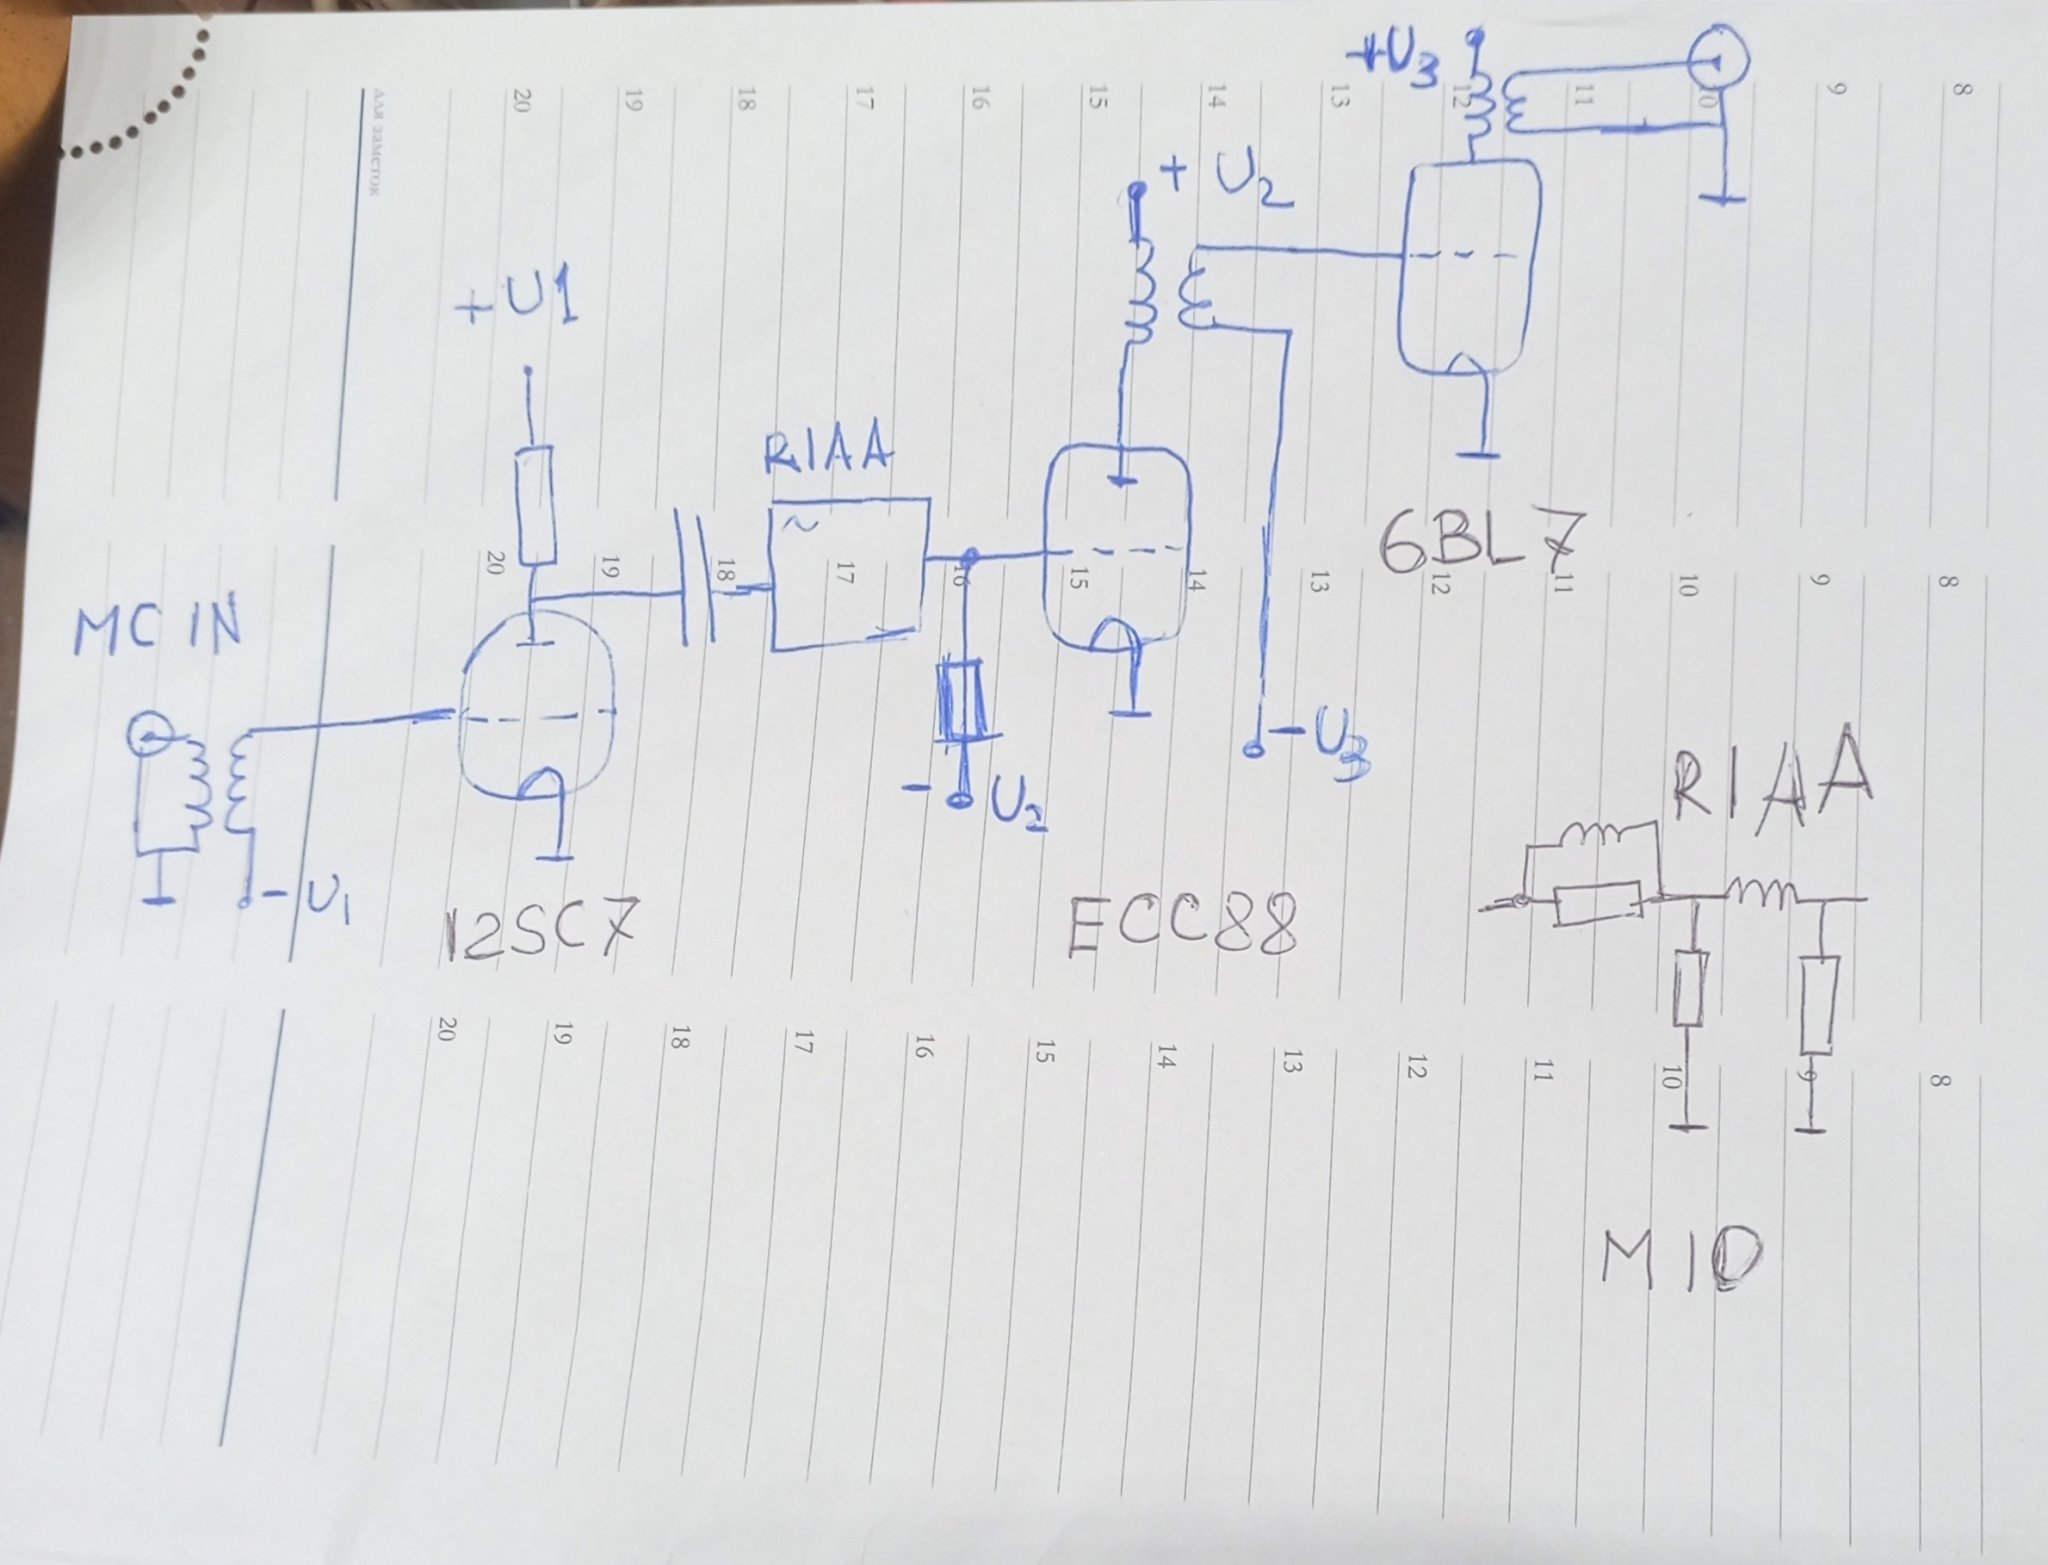 +U3
20 19 18 17 16 15 14 13 12 11 10 9 8
для заметок
+ U2
+ U1
RIAA
6BL7
20 19 18 17 16 15 14 13 12 11 10 9 8
MC IN
- U3
RIAA
- U2
- U1
12SC7
ECC88
20 19 18 17 16 15 14 13 12 11 10 9 8
M10